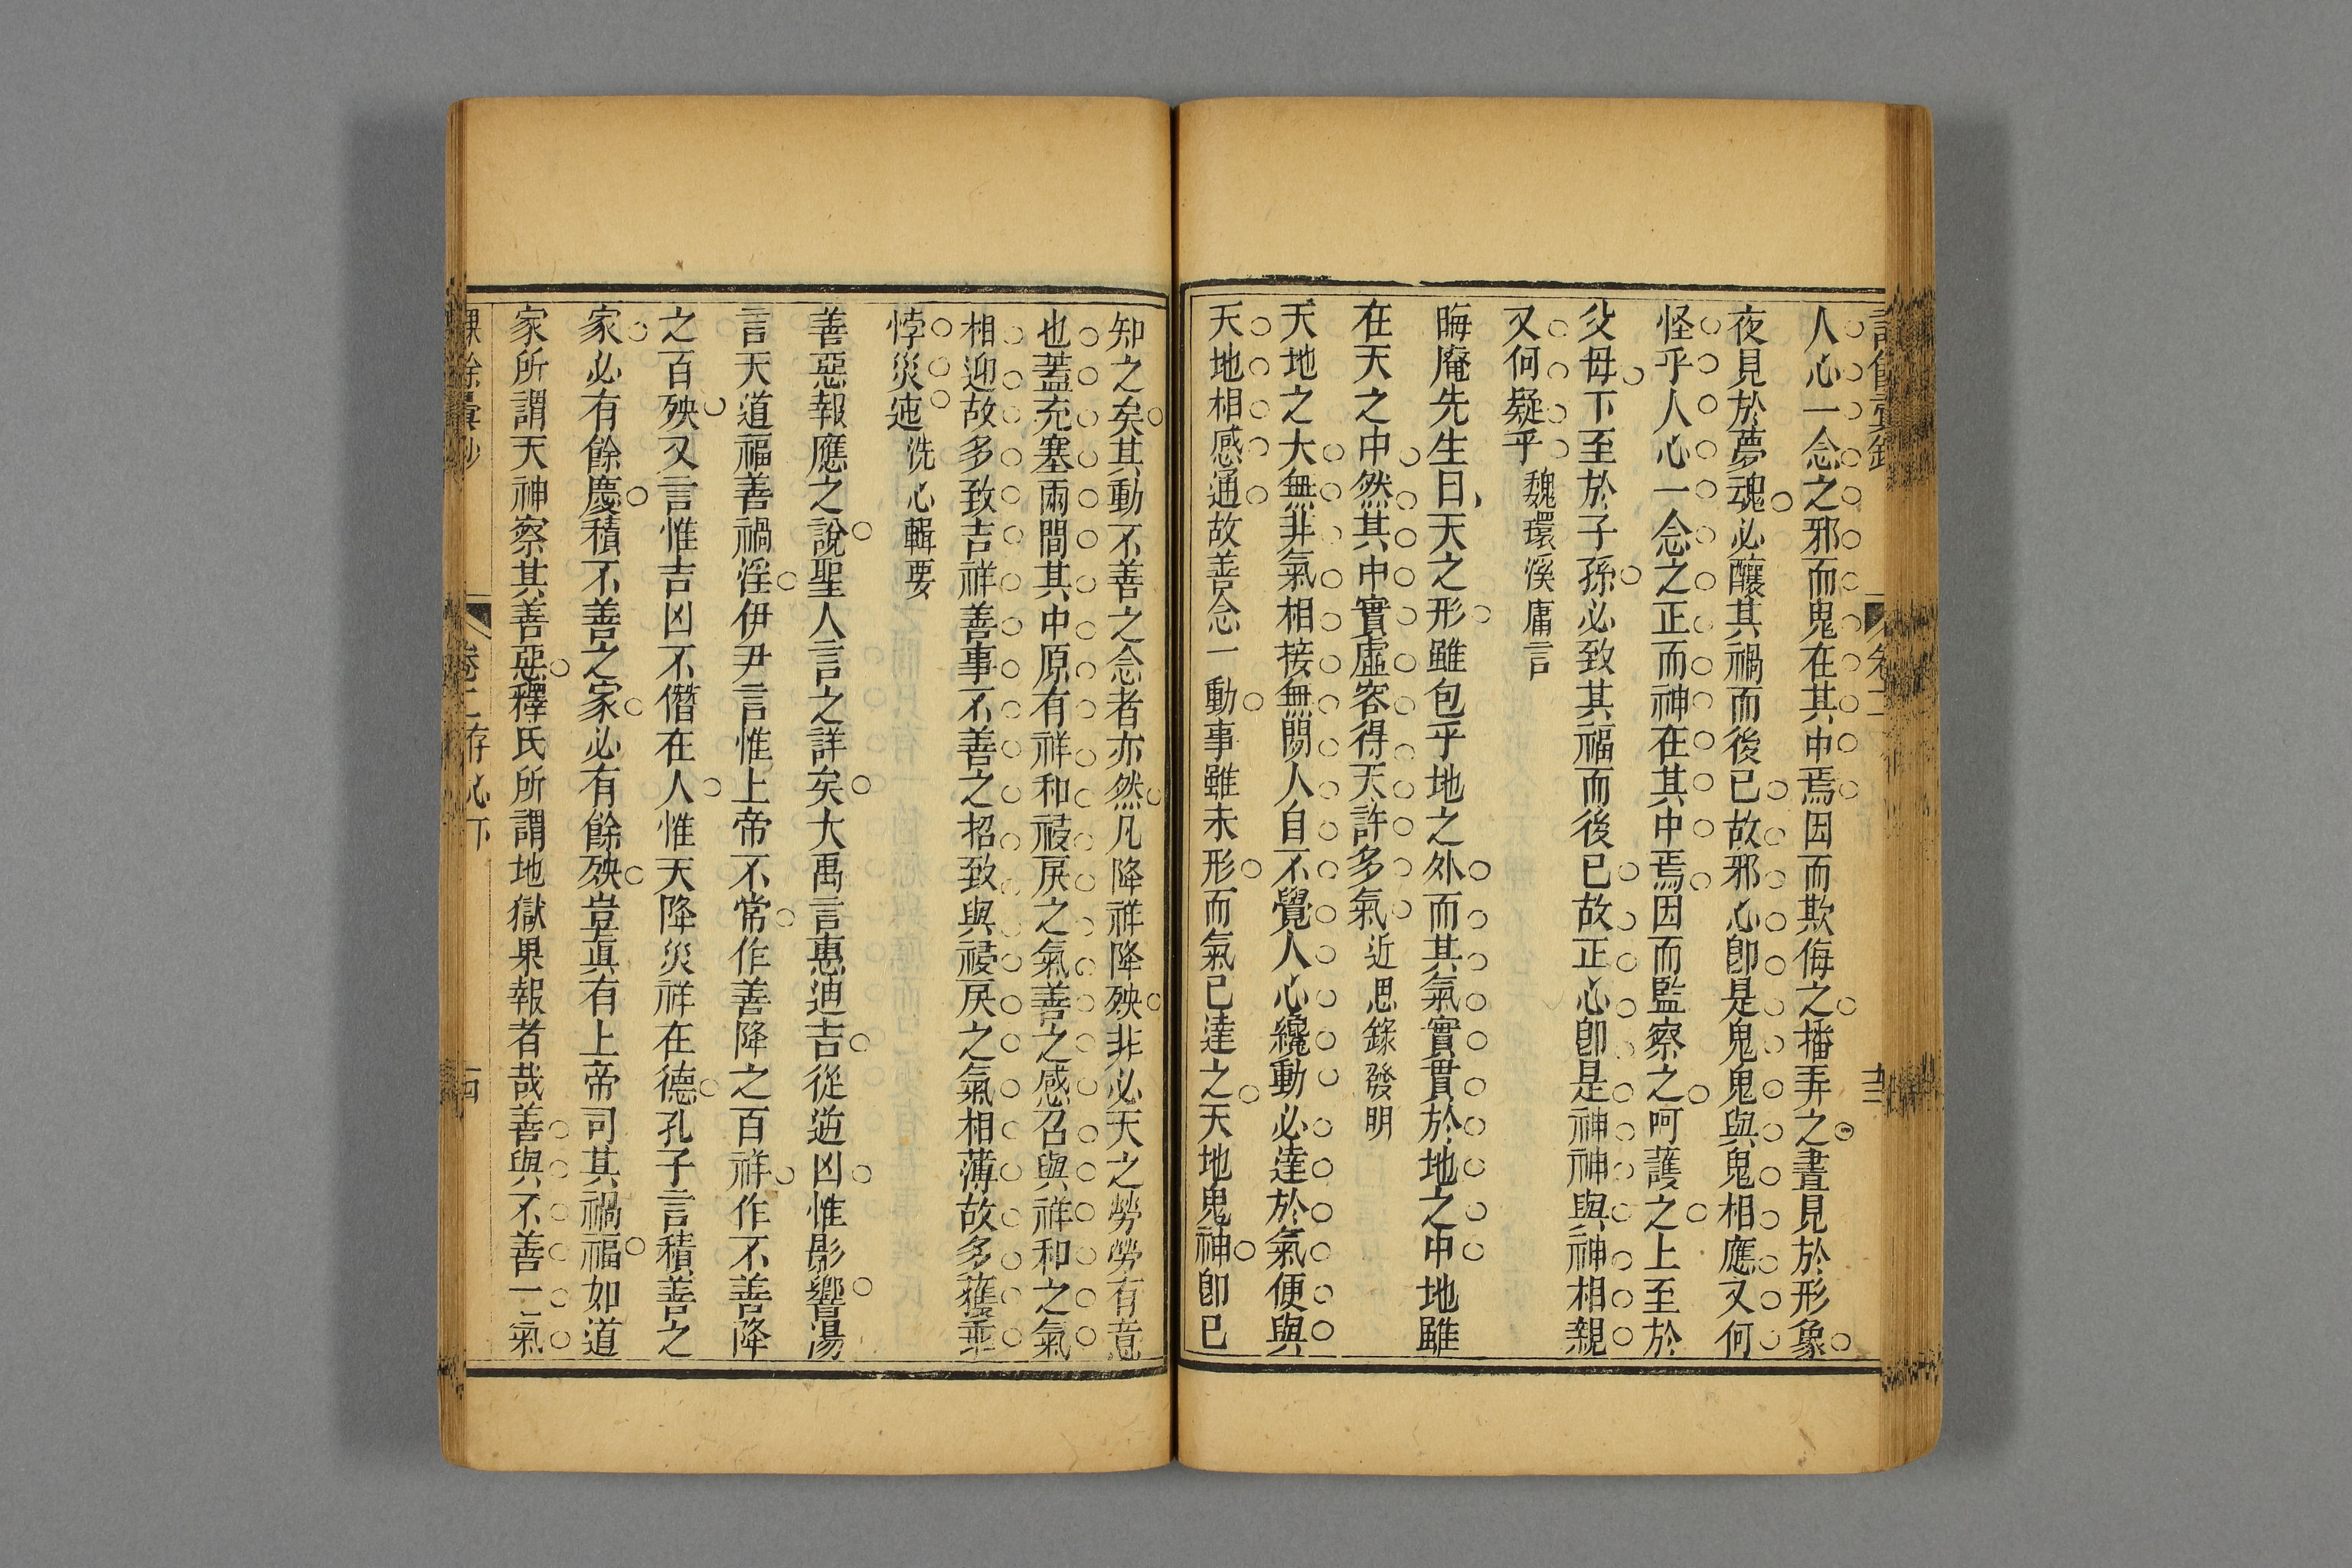 人心一念之邪而鬼在其中焉因而欺侮之播弄之晝見於形象
夜見於夢魂必釀其禍而後已故邪心卽是鬼鬼與鬼相應又何
怪乎人心一念之正而神在其中焉因而監察之呵護之上至於
父母下至於子孫必致其福而後已故正心卽是神神與神相親
又何疑乎 魏環溪庸言
晦庵先生曰天之形雖包乎地之外而其氣實貫於地之中地雖
在天之中然其中實虛容得天許多氣 近思錄發明
天地之大無非氣相接無間人自不覺人心纔動必達於氣便與
天地相感通故善念一動事雖未形而氣已達之天地鬼神卽已
知之矣其動不善之念者亦然凡降祥降殃非必天之勞勞有意
也蓋充塞兩間其中原有祥和祲戾之氣善之感召與祥和之氣
相迎故多致吉祥善事不善之招致與祲戾之氣相薄故多獲乖
悖災迍 洗心輯要
善惡報應之說聖人言之詳矣大禹言惠迪吉從逆凶惟影響湯
言天道福善禍淫伊尹言惟上帝不常作善降之百祥作不善降
之百殃又言惟吉凶不僭在人惟天降災祥在德孔子言積善之
家必有餘慶積不善之家必有餘殃豈眞有上帝司其禍福如道
家所謂天神察其善惡釋氏所謂地獄果報者哉善與不善一氣
卷二存心下